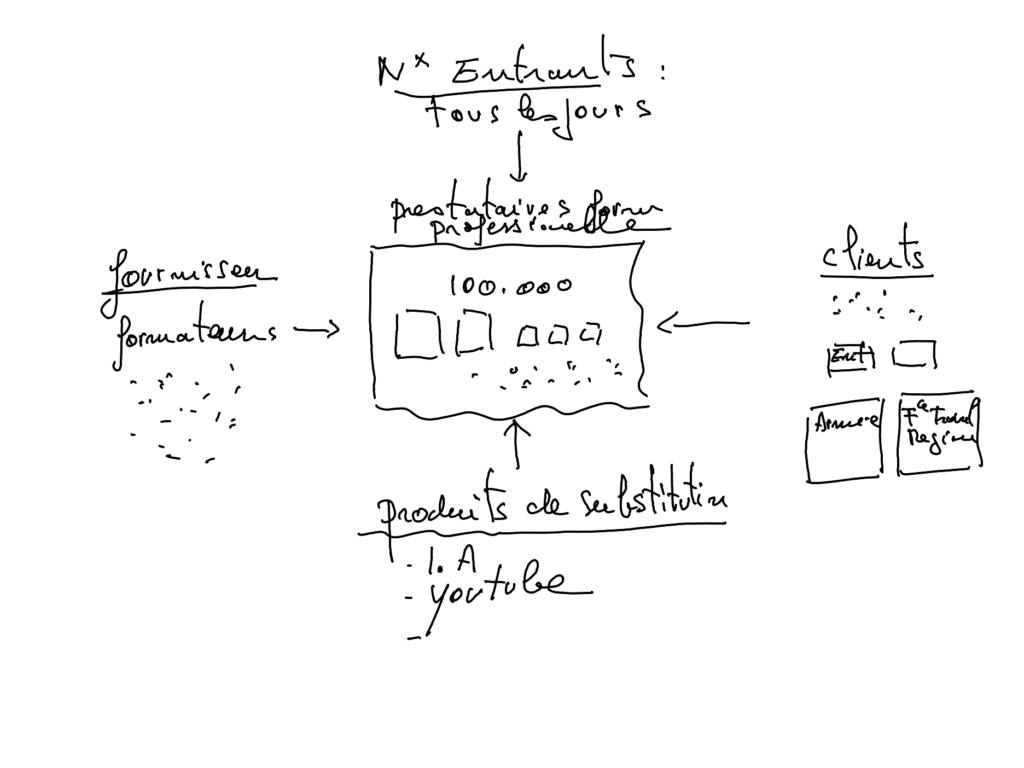 Nx Entrants :
tous les jours
prestataires form
professionnelle
100.000
fournisseu
formateurs
clients
Ent
Armée
Fce Travail
Region
produits de substitution
. I. A
- youtube
-